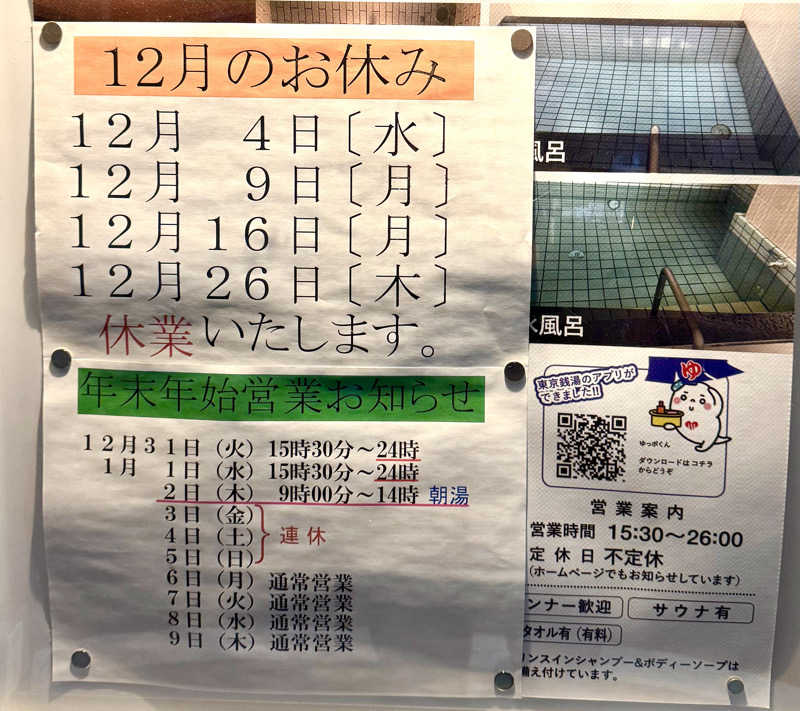 12月のお休み
12月 4日〔水〕
12月 9日〔月〕
12月16日〔月〕
12月26日〔木〕
休業いたします。
年末年始営業お知らせ
12月31日（火）15時30分～24時
1月 1日（水）15時30分～24時
2日（木） 9時00分～14時 朝湯
3日（金）
4日（土）連休
5日（日）
6日（月）通常営業
7日（火）通常営業
8日（水）通常営業
9日（木）通常営業
風呂
風呂
東京銭湯のアプリが
できました!!
ゆ
ゆっポくん
ダウンロードはコチラ
からどうぞ
営業案内
営業時間 15:30～26:00
定休日 不定休
（ホームページでもお知らせしています）
ンナー歓迎 サウナ有
タオル有（有料）
リンスインシャンプー&ボディーソープは
備え付けています。